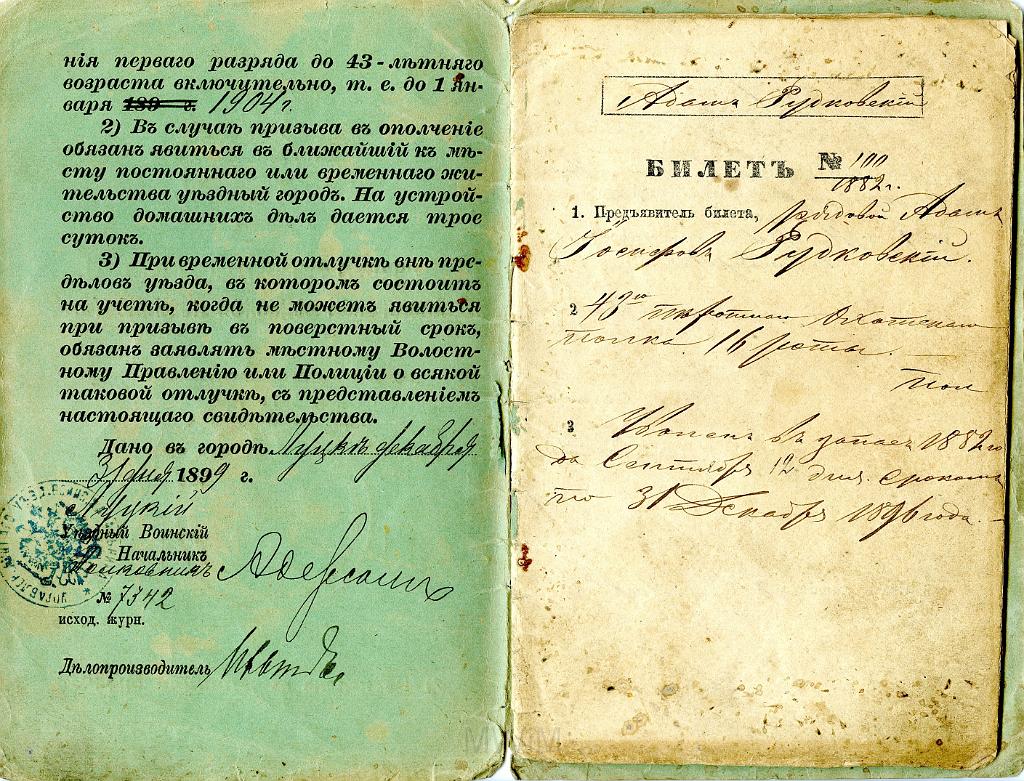 нія перваго разряда до 43-лѣтняго
возраста включительно, т. е. до 1 Ян-
варя 189 г. 1904 г.
2) Въ случаѣ призыва въ ополченіе
обязанъ явиться въ ближайшій къ мѣ-
сту постояннаго или временнаго жи-
тельства уѣздный городъ. На устрой-
ство домашнихъ дѣлъ дается трое
сутокъ.
3) При временной отлучкѣ внѣ пре-
дѣловъ уѣзда, въ которомъ состоитъ
на учетѣ, когда не можетъ явиться
при призывѣ въ поверстный срокъ,
обязанъ заявлять мѣстному Волост-
ному Правленію или Полиціи о всякой
таковой отлучкѣ, съ представленіемъ
настоящаго свидѣтельства.
Дано въ городѣ Луцкѣ декабря
31 дня 1899 г.
Луцкій
Уѣздный Воинскій
Начальникъ
Полковникъ
№ 7342
исход. журн.
Дѣлопроизводитель
Адамъ Рудковскій
БИЛЕТЪ № 100
1882 г.
1. Предъявитель билета, рядовой Адамъ
Іосифовъ Рудковскій.
2 43го пѣхотнаго Охотскаго
полка 16 роты.
3 Уволенъ въ запасъ 1882 го
да Сентября 12 дня срокомъ
по 31 Декабря 1896 года.